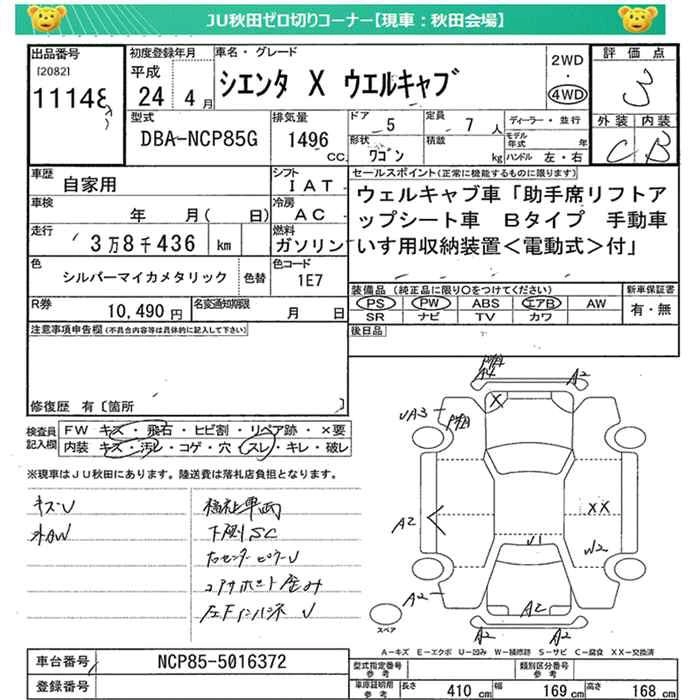 JU秋田ゼロ切りコーナー【現車：秋田会場】
出品番号
[2082]
11148
初度登録年月
平成
24 4月
車名・グレード
シエンタ X ウエルキャブ
2WD
・
4WD
評価点
3
外装 内装
C B
型式
DBA-NCP85G
排気量
1496
CC
ドア 5
定員 7人
形状 ワゴン
積載 kg
ディーラー・並行
モデル年式 年
ハンドル 左・右
車歴 自家用
シフト IAT
車検 年 月( 日)
冷房 AC
走行 3万8千436 km
燃料 ガソリン
色 シルバーマイカメタリック 色替
色コード 1E7
R券 10,490円
名変通知期限 月 日
セールスポイント(正常に機能するものに限ります)
ウェルキャブ車「助手席リフトア
ップシート車 Bタイプ 手動車
いす用収納装置<電動式>付」
装備品 (純正品に限り○をつけてください)
PS PW ABS エアB AW
SR ナビ TV カワ
新車保証書
有・無
後日品
注意事項申告欄(不具合内容等は具体的に記入して下さい)
修復歴 有〔箇所 〕
検査員
記入欄
FW キズ・飛石・ヒビ割・リペア跡・×要
内装 キズ・汚レ・コゲ・穴・スレ・キレ・破レ
※現車はJU秋田にあります。陸送費は落札店負担となります。
キズU
外AW
福祉車両
下廻りSC
右センターピラーU
コアサポート歪み
左Fインパネ U
A4
A2
UA3
X
A2
XX
U1
W2
A2
A2
A2
A2
スペア
A－キズ E－エクボ U－凹み W－補修跡 S－サビ C－腐食 XX－交換済
車台番号 NCP85-5016372
登録番号
型式指定番号
参考
類別区分番号
参考
車庫証明用
参考
長さ 410 cm 幅 169 cm 高さ 168 cm